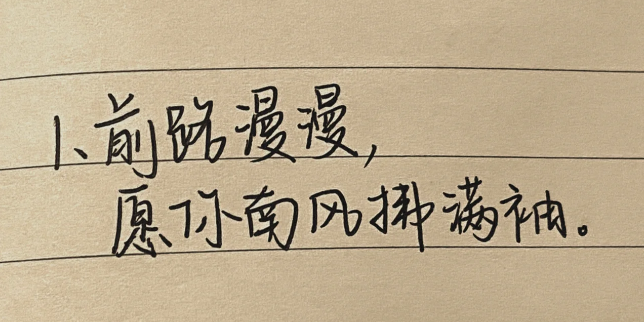 1、前路漫漫,
愿你南风拂满袖。